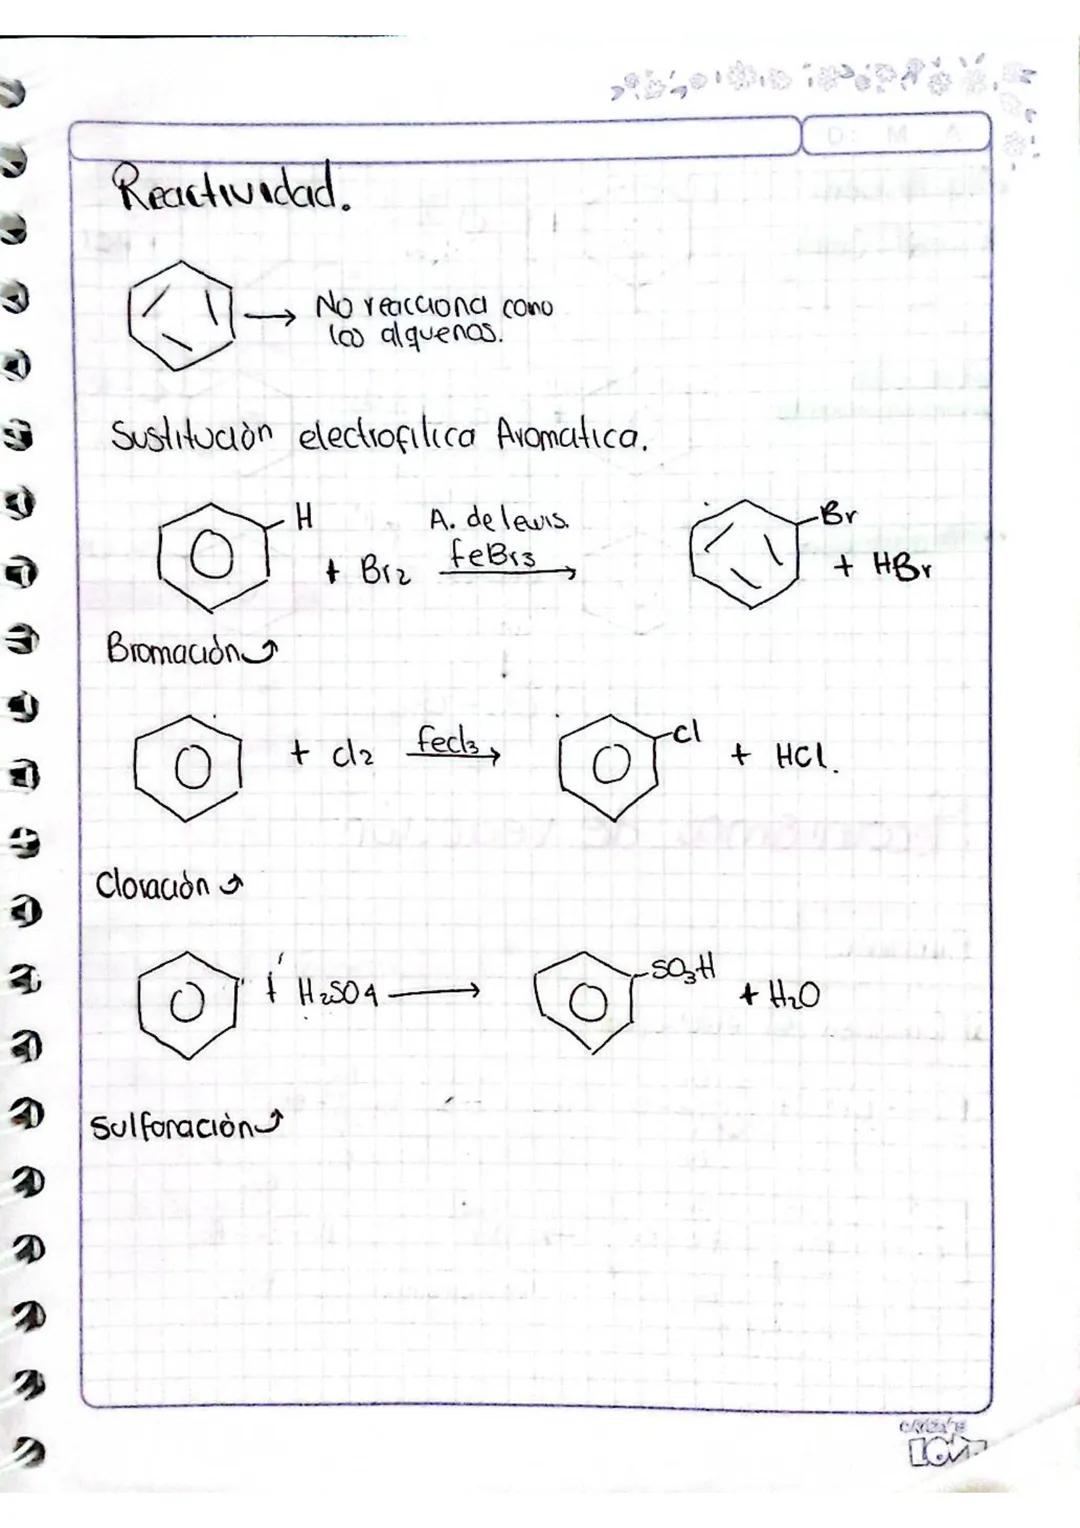 D: M A
Reactividad.
→ No reacciona como
los alquenos.
Sustitución electrofilica Aromatica.
H
+ Br2
A. de lewis.
feBr3
Br
+ HBr
Bromación
+ cl2
fecl3
cl
+ HCl.
Cloración
+ H2SO4 →
SO3H
+ H2O
Sulfonación
LOVE